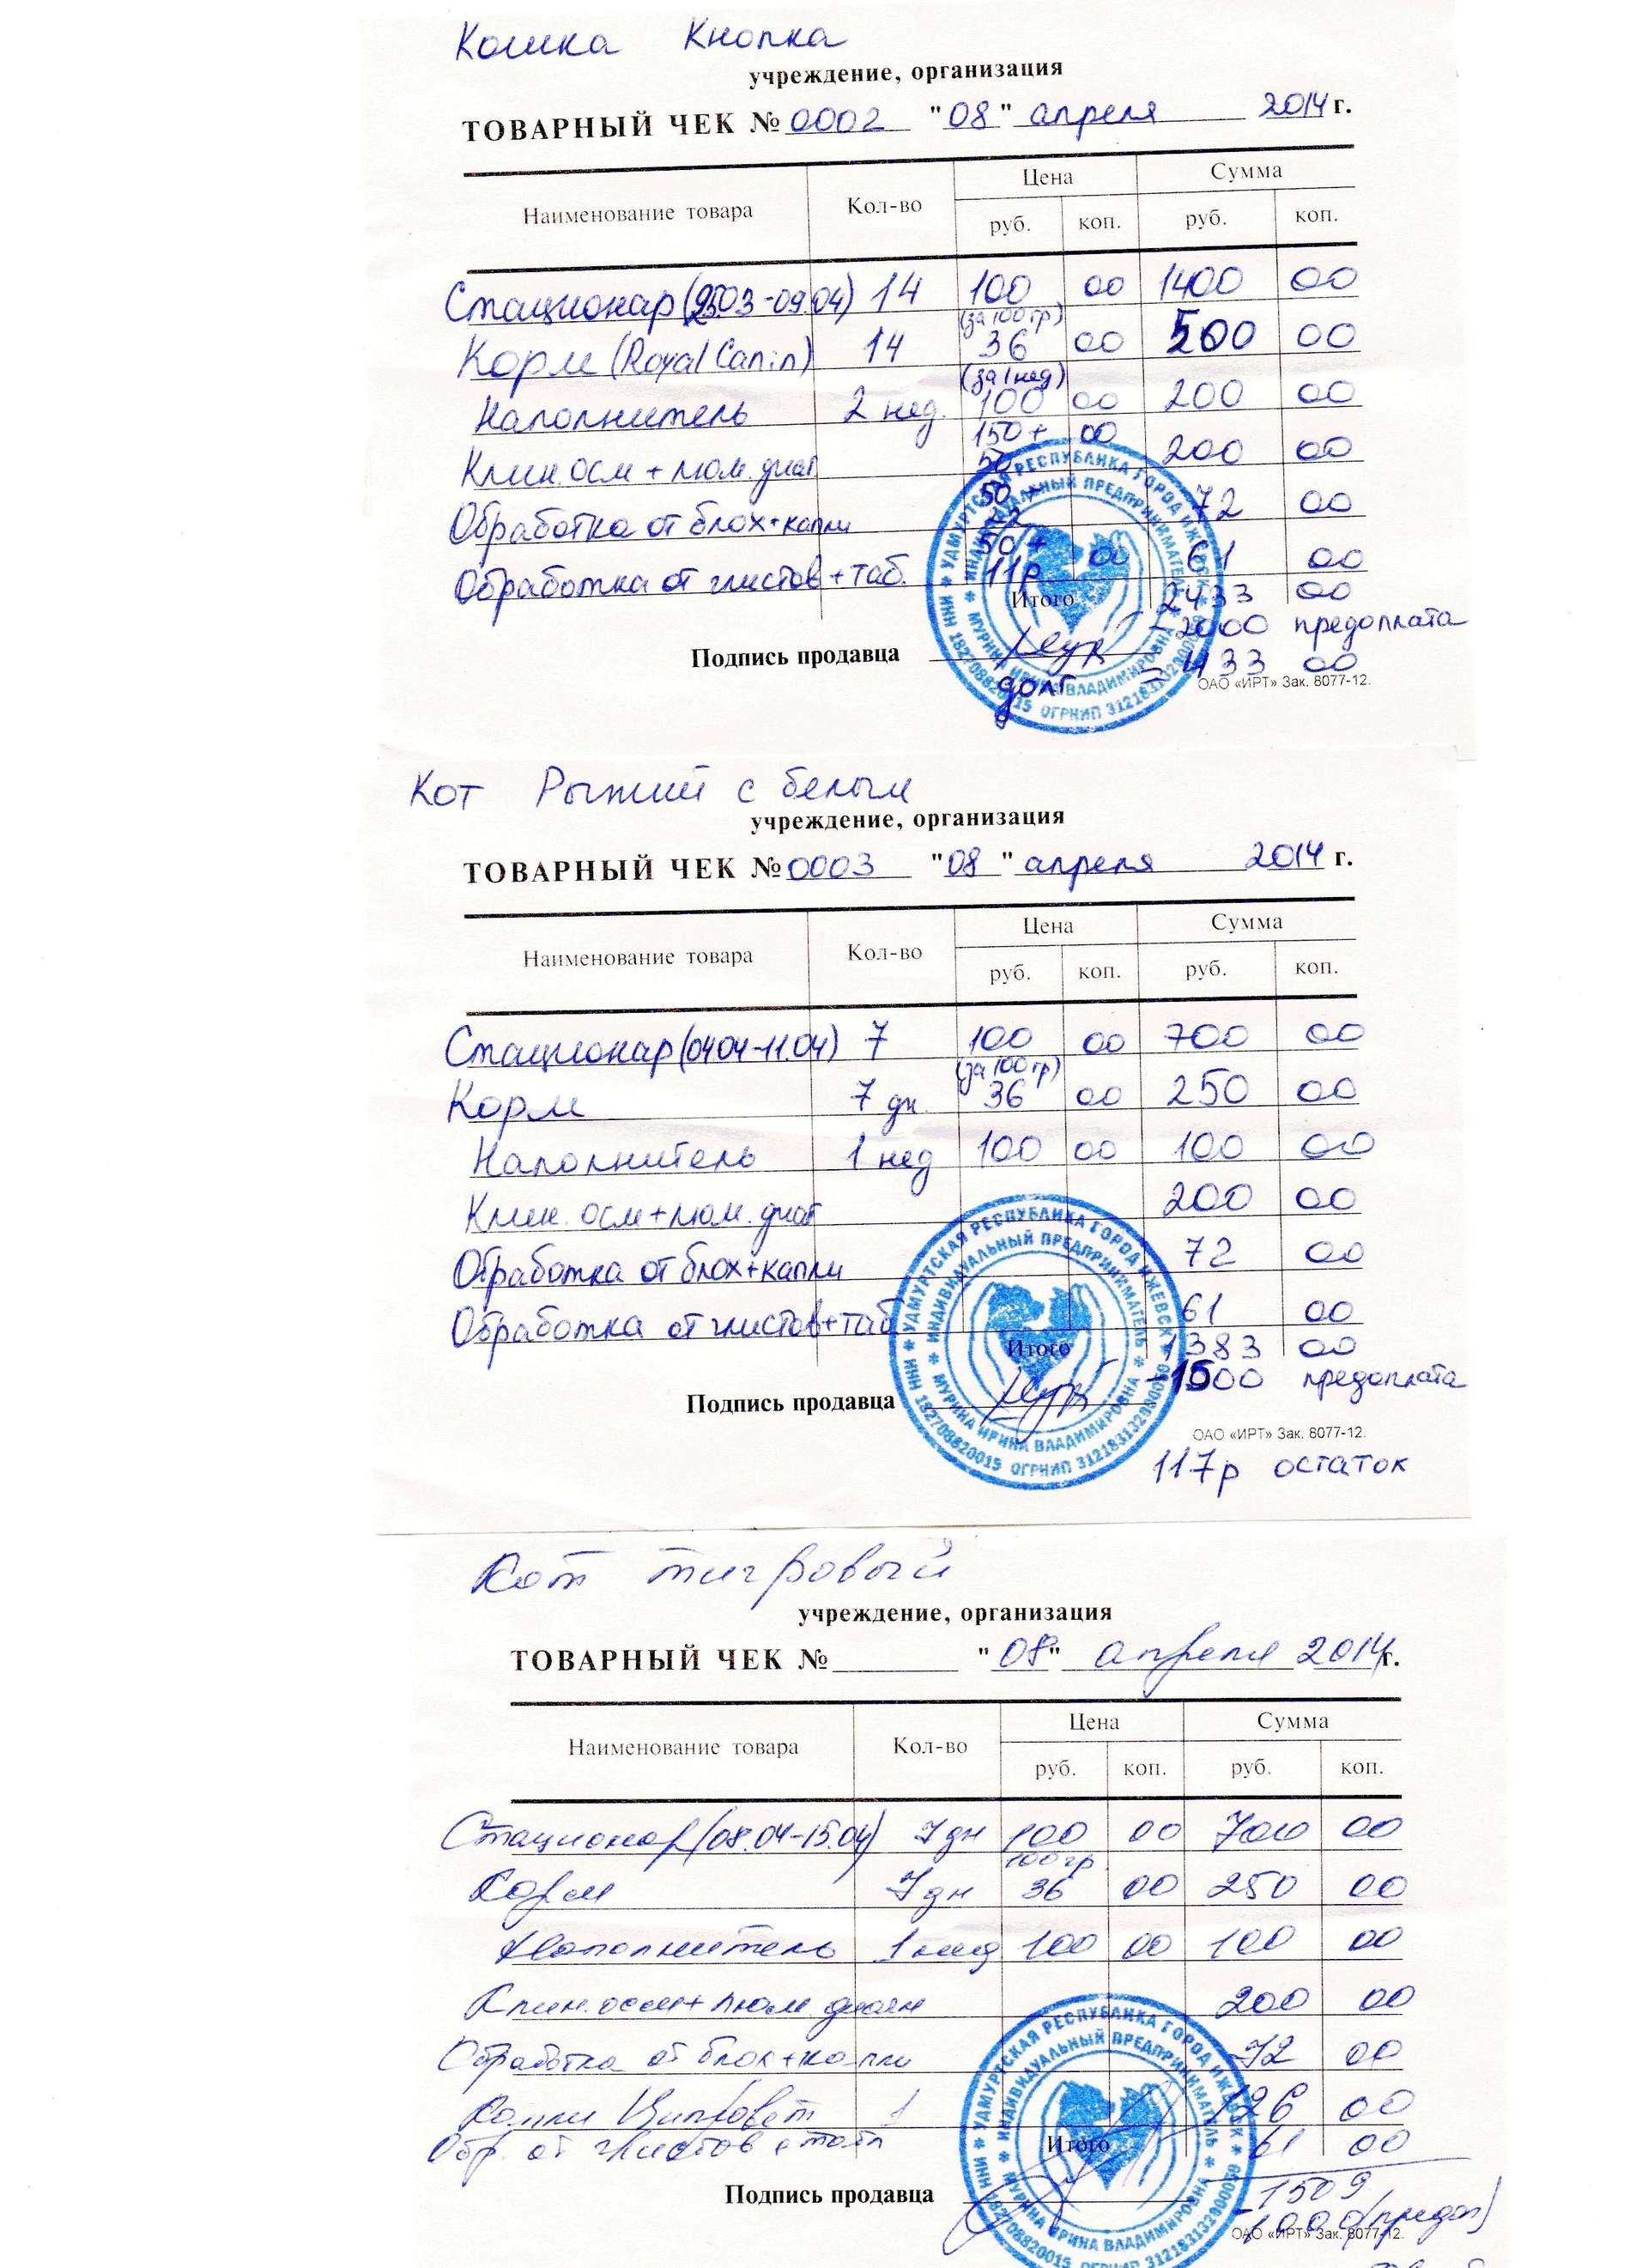 Кошка Кнопка
учреждение, организация
ТОВАРНЫЙ ЧЕК № 0002 "08" апреля 2014 г.
Наименование товара Кол-во Цена Сумма
руб. коп. руб. коп.
Стационар (25.03-09.04) 14 100 00 1400 00
(за 100 гр)
Корм (Royal Canin) 14 36 00 500 00
(за 1 нед)
Наполнитель 2 нед. 100 00 200 00
150+ 00
Клин. осм + люм. диаг 50 200 00
50+
Обработка от блох+капли 22 72 00
50+
Обработка от глистов+таб. 11р 00 61 00
Итого 2433 00
-2000 предоплата
Подпись продавца
долг = 433 00
ОАО «ИРТ» Зак. 8077-12.
УДМУРТСКАЯ РЕСПУБЛИКА ГОРОД ИЖЕВСК
ИНДИВИДУАЛЬНЫЙ ПРЕДПРИНИМАТЕЛЬ
МУРИНА ИРИНА ВЛАДИМИРОВНА
ИНН 182708820015 ОГРНИП
Кот Рыжий с белым
учреждение, организация
ТОВАРНЫЙ ЧЕК № 0003 "08" апреля 2014 г.
Наименование товара Кол-во Цена Сумма
руб. коп. руб. коп.
Стационар (04.04-11.04) 7 100 00 700 00
(за 100 гр)
Корм 7 дн. 36 00 250 00
Наполнитель 1 нед 100 00 100 00
Клин. осм+люм. диаг 200 00
Обработка от блох+капли 72 00
Обработка от глистов+таб 61 00
Итого 1383 00
-1500 предоплата
Подпись продавца
ОАО «ИРТ» Зак. 8077-12.
117р остаток
УДМУРТСКАЯ РЕСПУБЛИКА ГОРОД ИЖЕВСК
ИНДИВИДУАЛЬНЫЙ ПРЕДПРИНИМАТЕЛЬ
МУРИНА ИРИНА ВЛАДИМИРОВНА
ИНН 182708820015 ОГРНИП
Кот тигровый
учреждение, организация
ТОВАРНЫЙ ЧЕК № "08" апреля 2014 г.
Наименование товара Кол-во Цена Сумма
руб. коп. руб. коп.
Стационар (08.04-15.04) 7 дн 100 00 700 00
100 гр
Корм 7 дн 36 00 250 00
Наполнитель 1 нед 100 00 100 00
Клин. осм+ люм. диагн 200 00
Обработка от блох+капли 72 00
Капли Ципровет 1 126 00
Обр. от глистов + табл 61 00
Итого
1509
Подпись продавца
-1000 (предоп)
ОАО «ИРТ» Зак. 8077-12.
УДМУРТСКАЯ РЕСПУБЛИКА ГОРОД ИЖЕВСК
ИНДИВИДУАЛЬНЫЙ ПРЕДПРИНИМАТЕЛЬ
МУРИНА ИРИНА ВЛАДИМИРОВНА
ИНН 182708820015 ОГРНИП